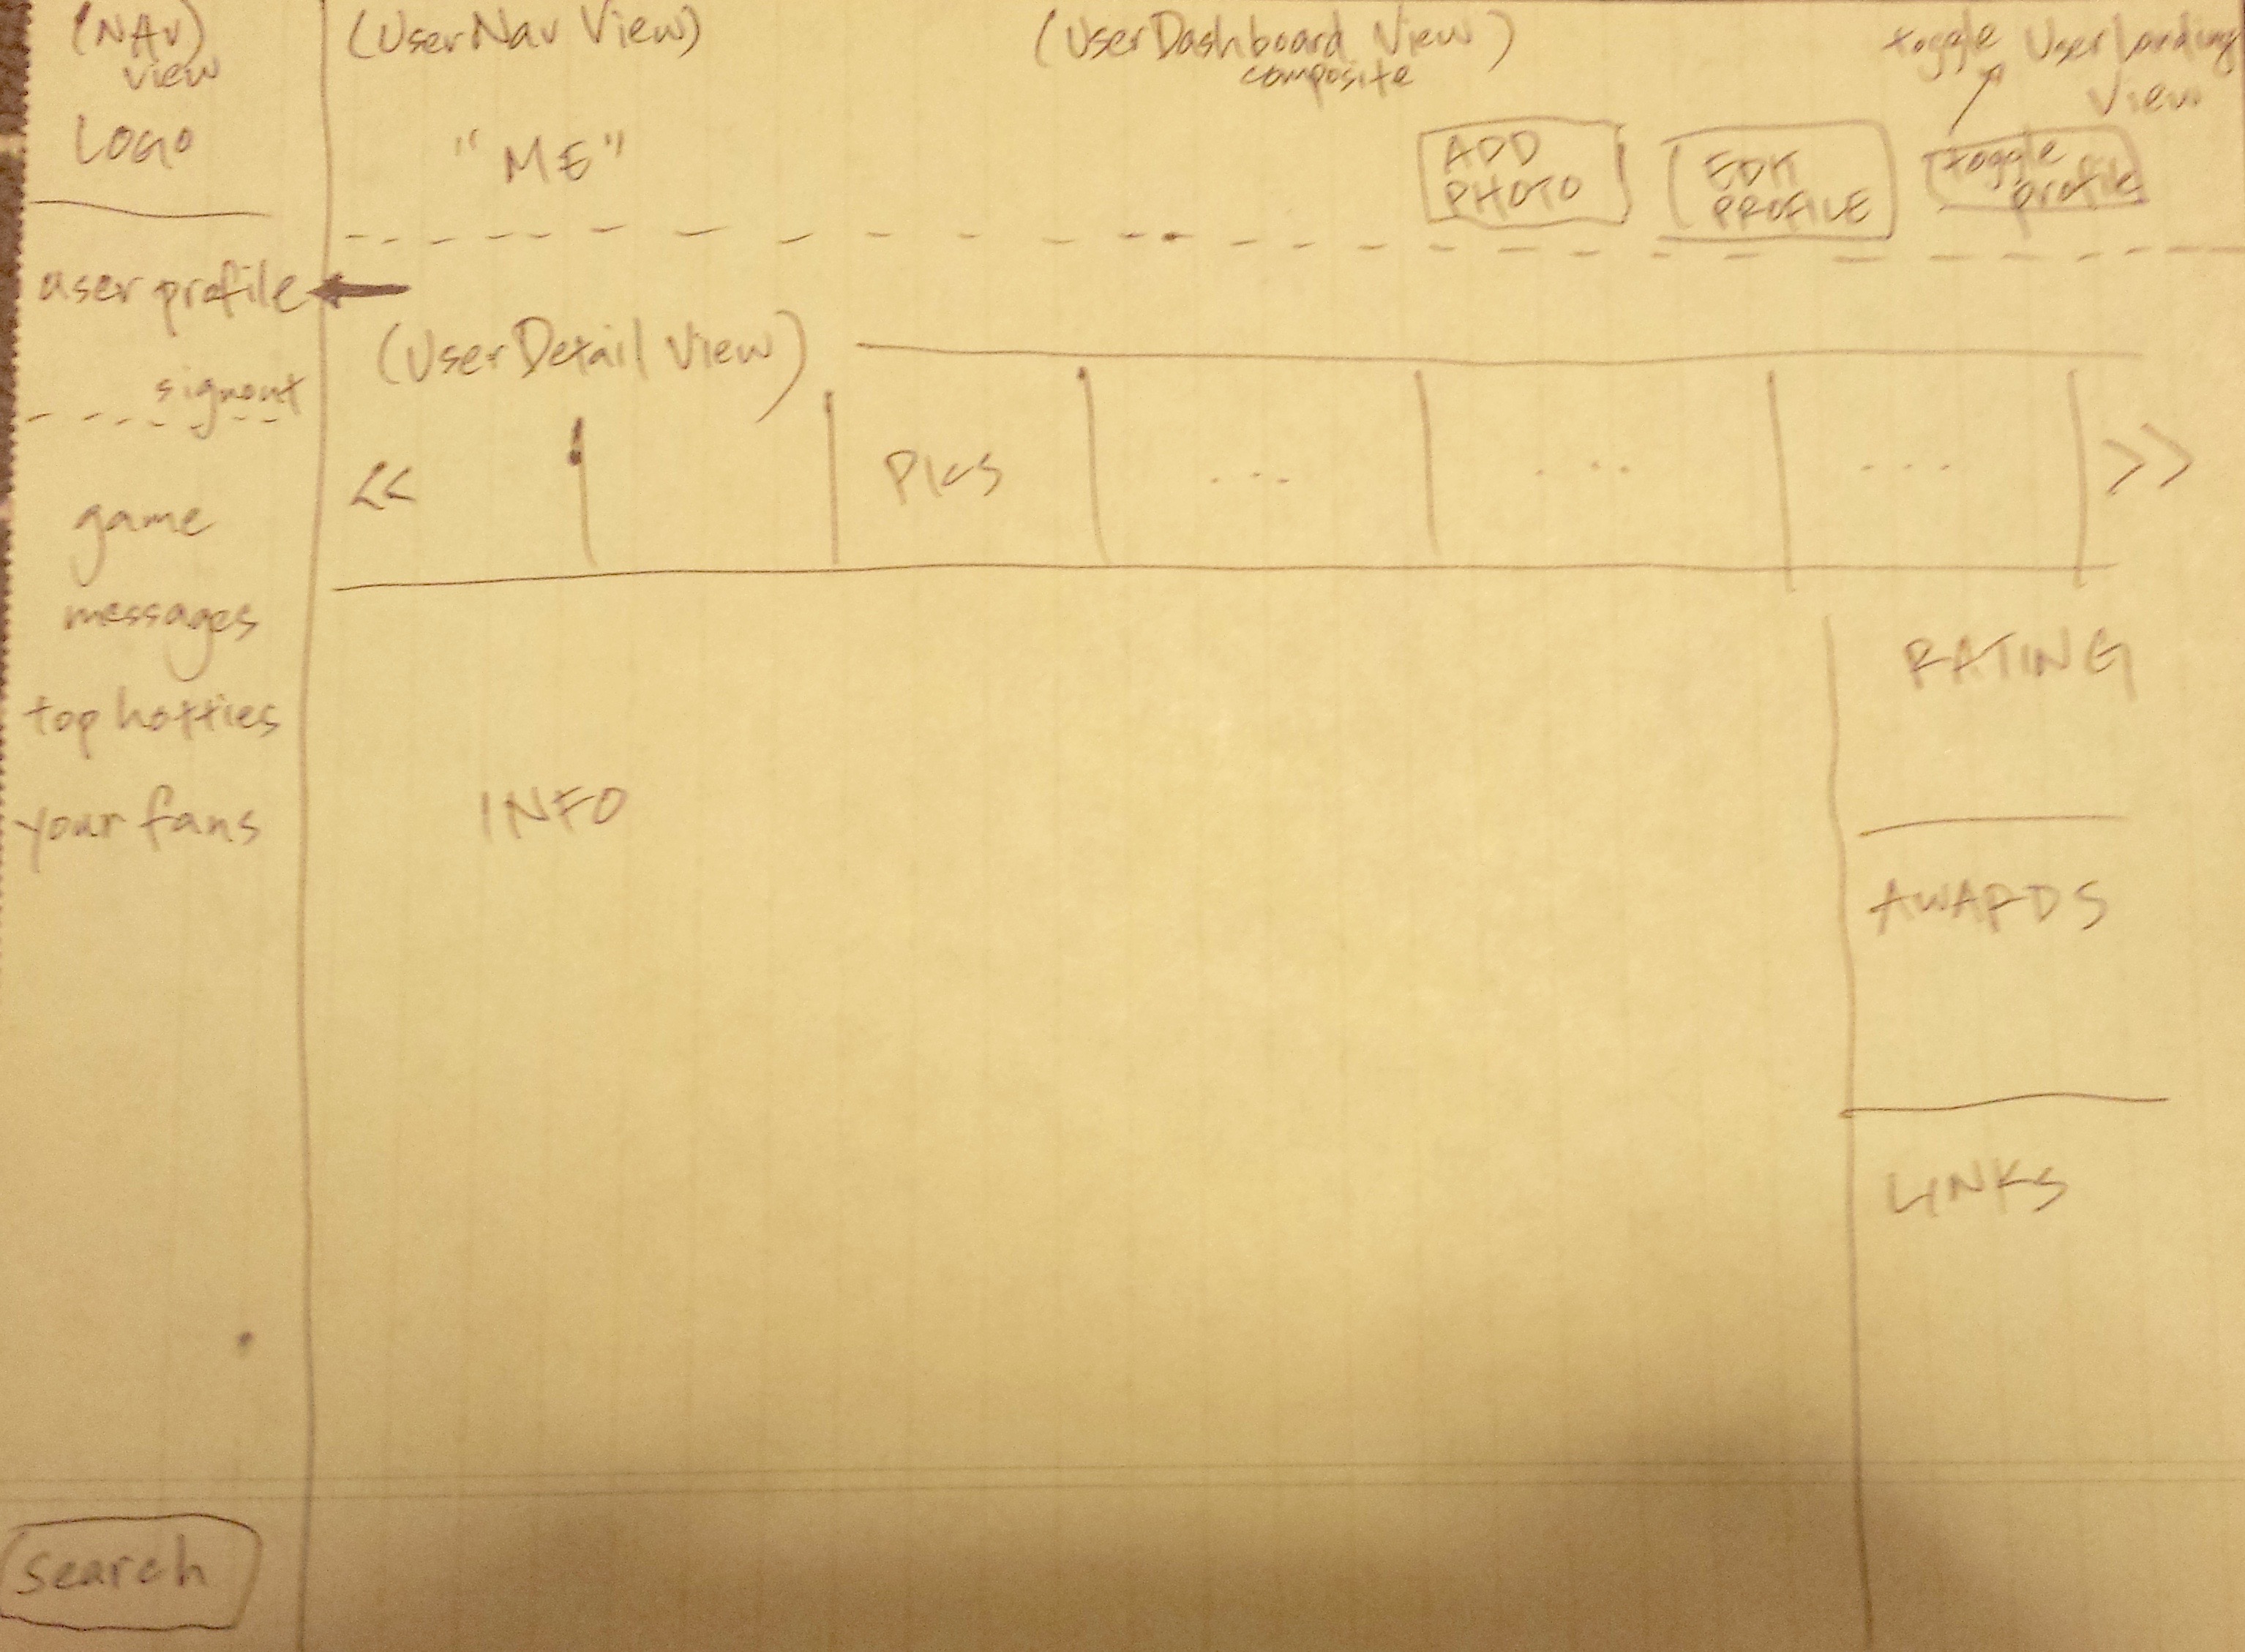 (NAV)
view
LOGO
user profile
signout
game
messages
top hotties
your fans
search
(UserNav View)
"ME"
(UserDashboard View)
composite
toggle UserLanding
View
ADD
PHOTO
EDIT
PROFILE
toggle
profile
(UserDetail View)
<< PICS ... ... ... >>
INFO
RATING
AWARDS
LINKS